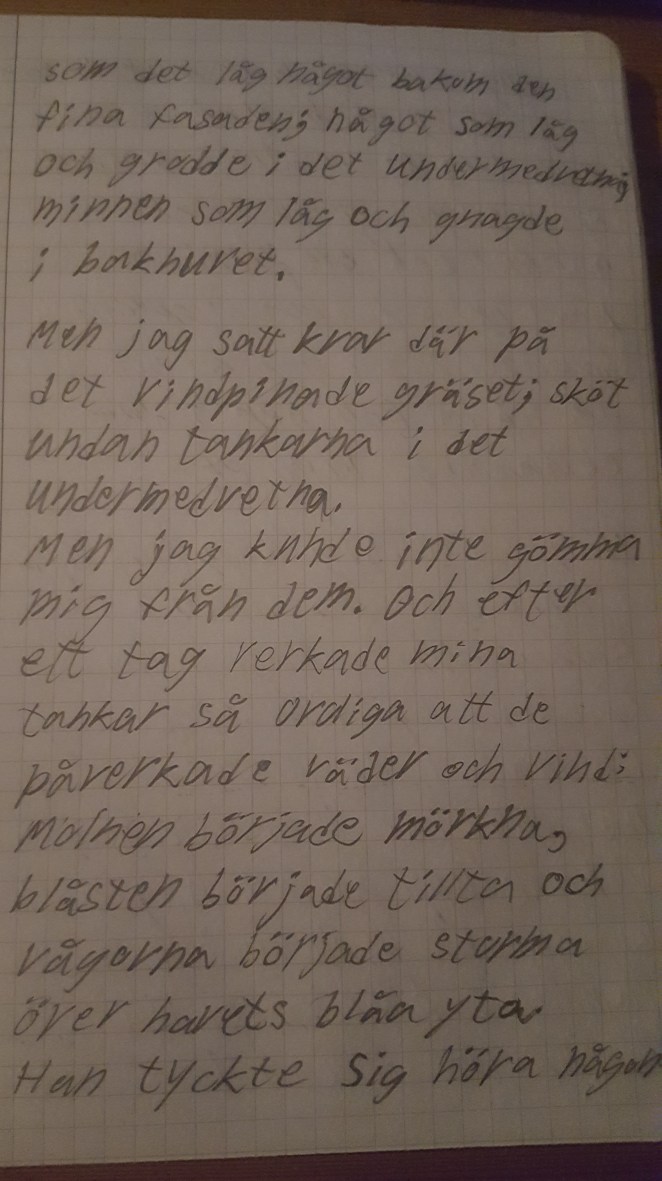 som det låg något bakom den
fina fasaden; något som låg
och grodde i det undermedvetna;
minnen som låg och gnagde
i bakhuvet.
Men jag satt kvar där på
det vindpinade gräset; sköt
undan tankarna i det
undermedvetna.
Men jag kunde inte gömma
mig från dem. Och efter
ett tag verkade mina
tankar så oroliga att de
påverkade väder och vind:
Molnen började mörkna,
blåsten började tillta och
vågorna började storma
över havets blåa yta.
Han tyckte sig höra någon